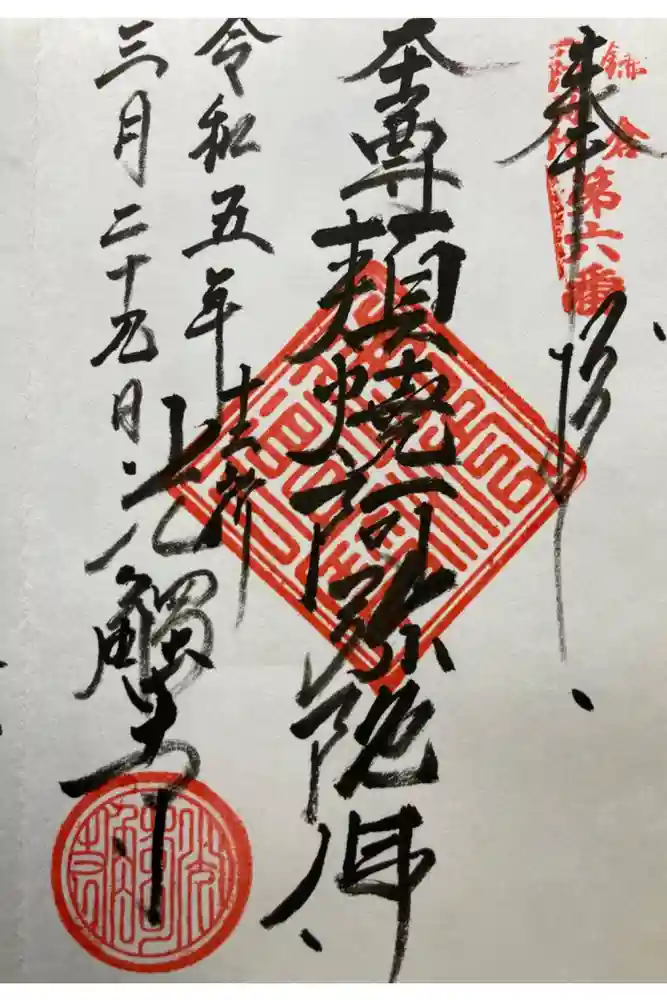 奉拝
鎌倉
第六番
本尊頬燒阿弥陀佛
令和五年
三月二十九日
十二所
光觸寺